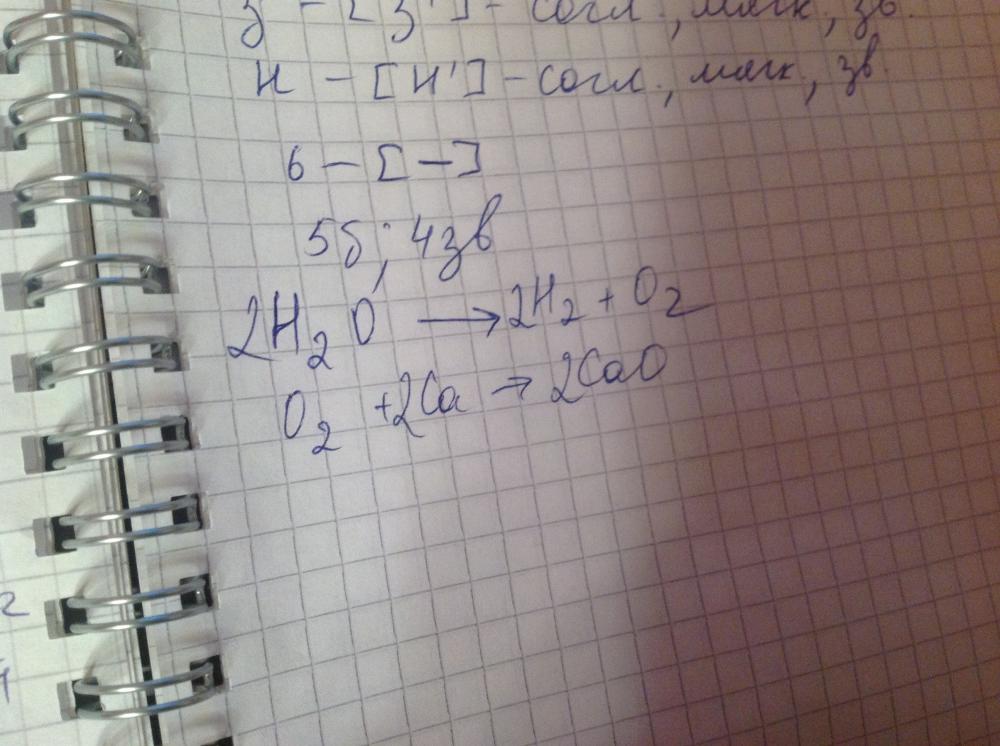 з – [з'] – согл., мягк., зв.
н – [н'] – согл., мягк., зв.
ь – [–]
5б; 4зв
2H₂O → 2H₂ + O₂
O₂ + 2Ca → 2CaO